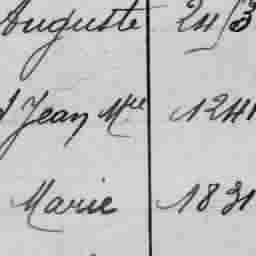 Auguste 24/3
Jean Mlle 1241
Marie 1831